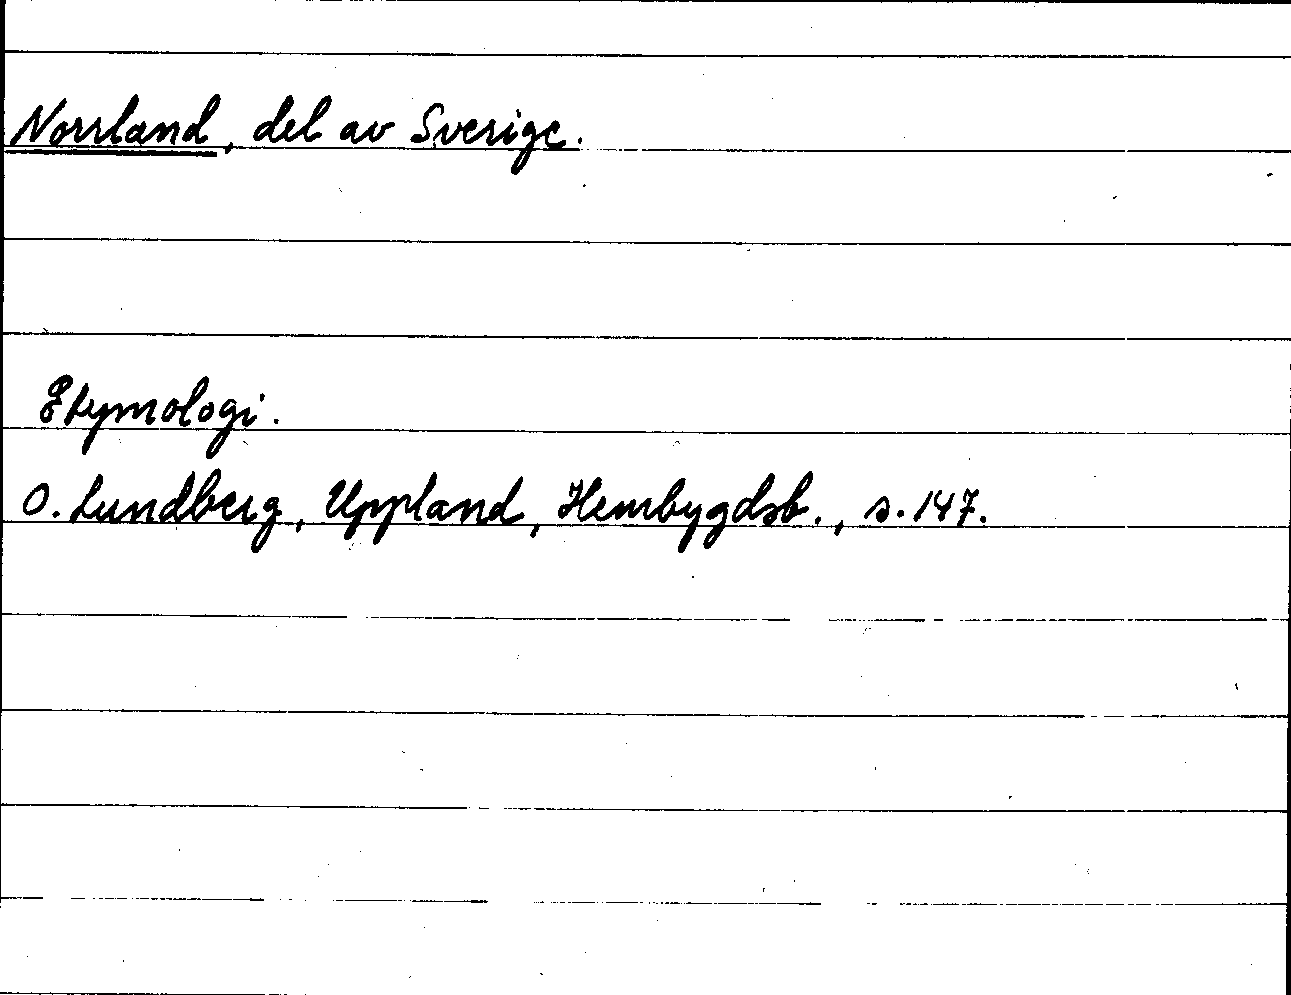 Norrland, del av Sverige.
Etymologi.
O. Lundberg, Uppland, Hembygdsb., s. 147.